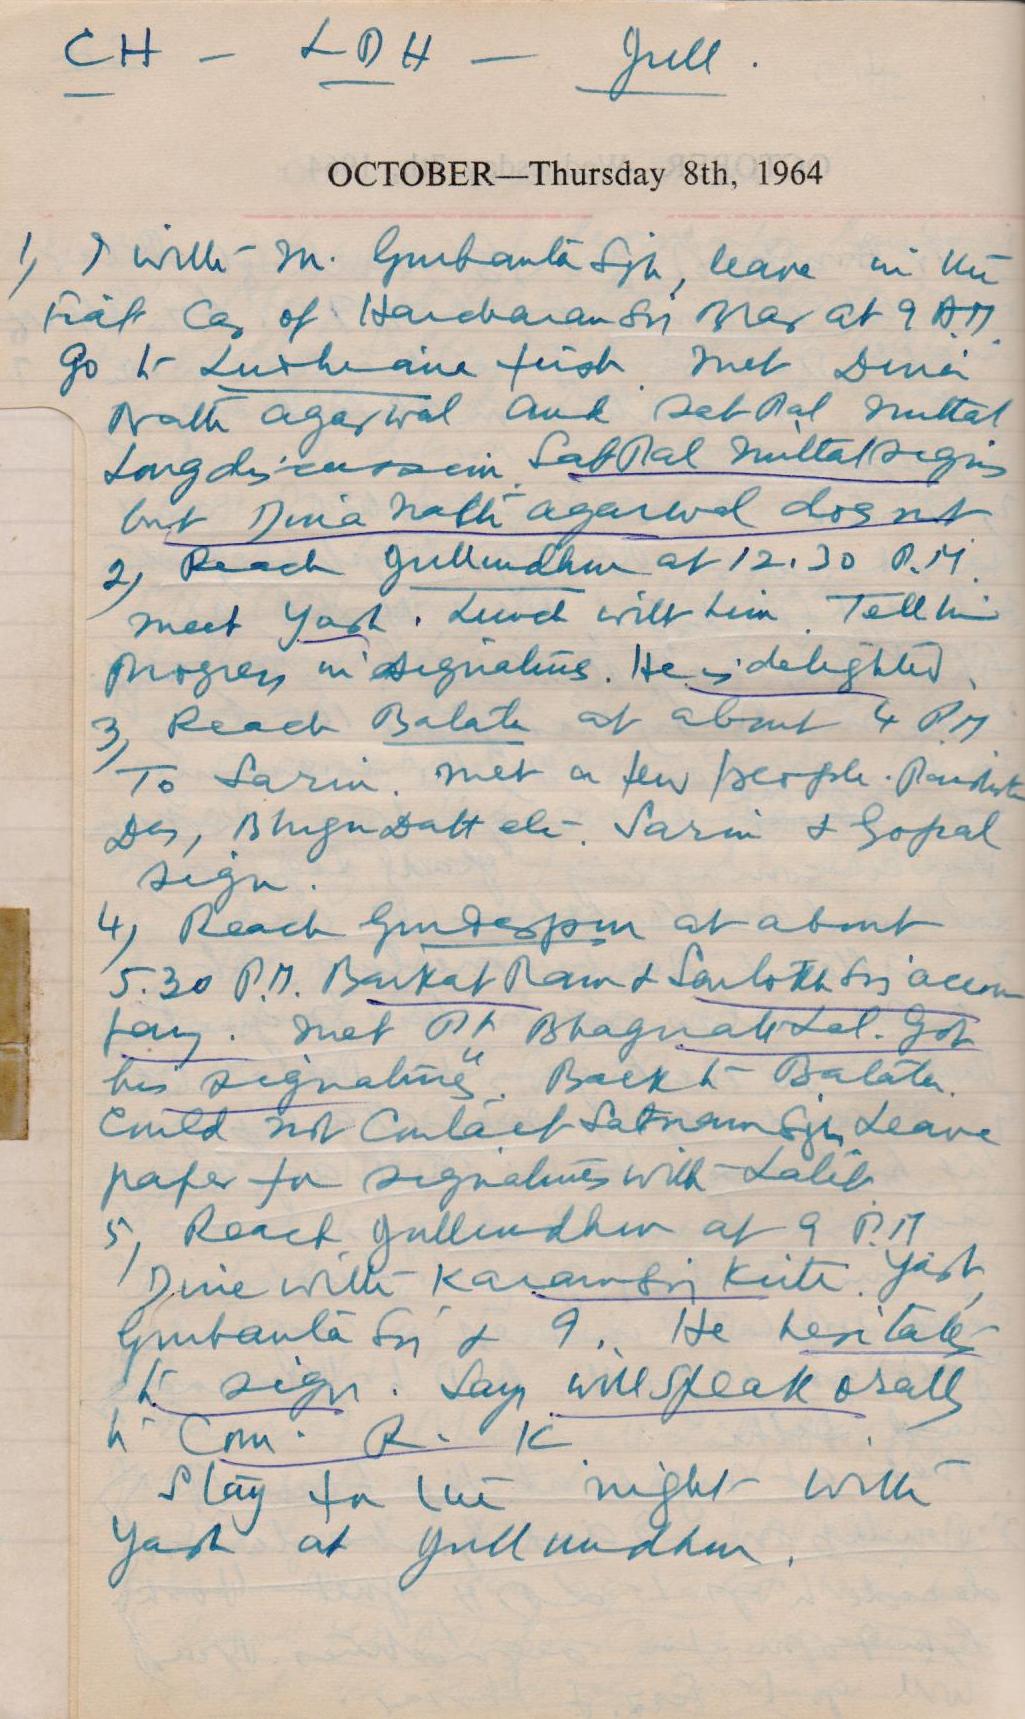 CH - LDH - Jull.
OCTOBER—Thursday 8th, 1964
1, I with M. Gurbanta Sgh, leave in the
Fiat Car of Harcharan Sn Brar at 9 A.M.
Go to Ludhiana first. Met Dina
Nath Agarwal and Sat Pal Mittal
Long discussion. Sat Pal Mittal signs
but Dina Nath Agarwal does not
2, Reach Jullundhur at 12.30 P.M.
meet Yash. Lunch with him. Tell him
Progress in signatures. He is delighted.
3, Reach Batala at about 4 P.M
To Sarin. Met a few people.
Das, Bhigu Datt etc. Sarin & Gopal
sign.
4, Reach Gurdaspur at about
5.30 P.M. Barkat Ram & Sn accom
pany. Met Pt Bhagwati Lal. Got
his signatures. Back to Batala.
Could not Contact Satnam Sgh, Leave
paper for signatures with Lalit.
5, Reach Jullundhur at 9 P.M
Dine with Karam Sn Kirti. Yash,
Gurbanta Sn & I. He hesitates
to sign. Says will speak orally
to Com. R. K
Stay for the night with
Yash at Jullundhur.